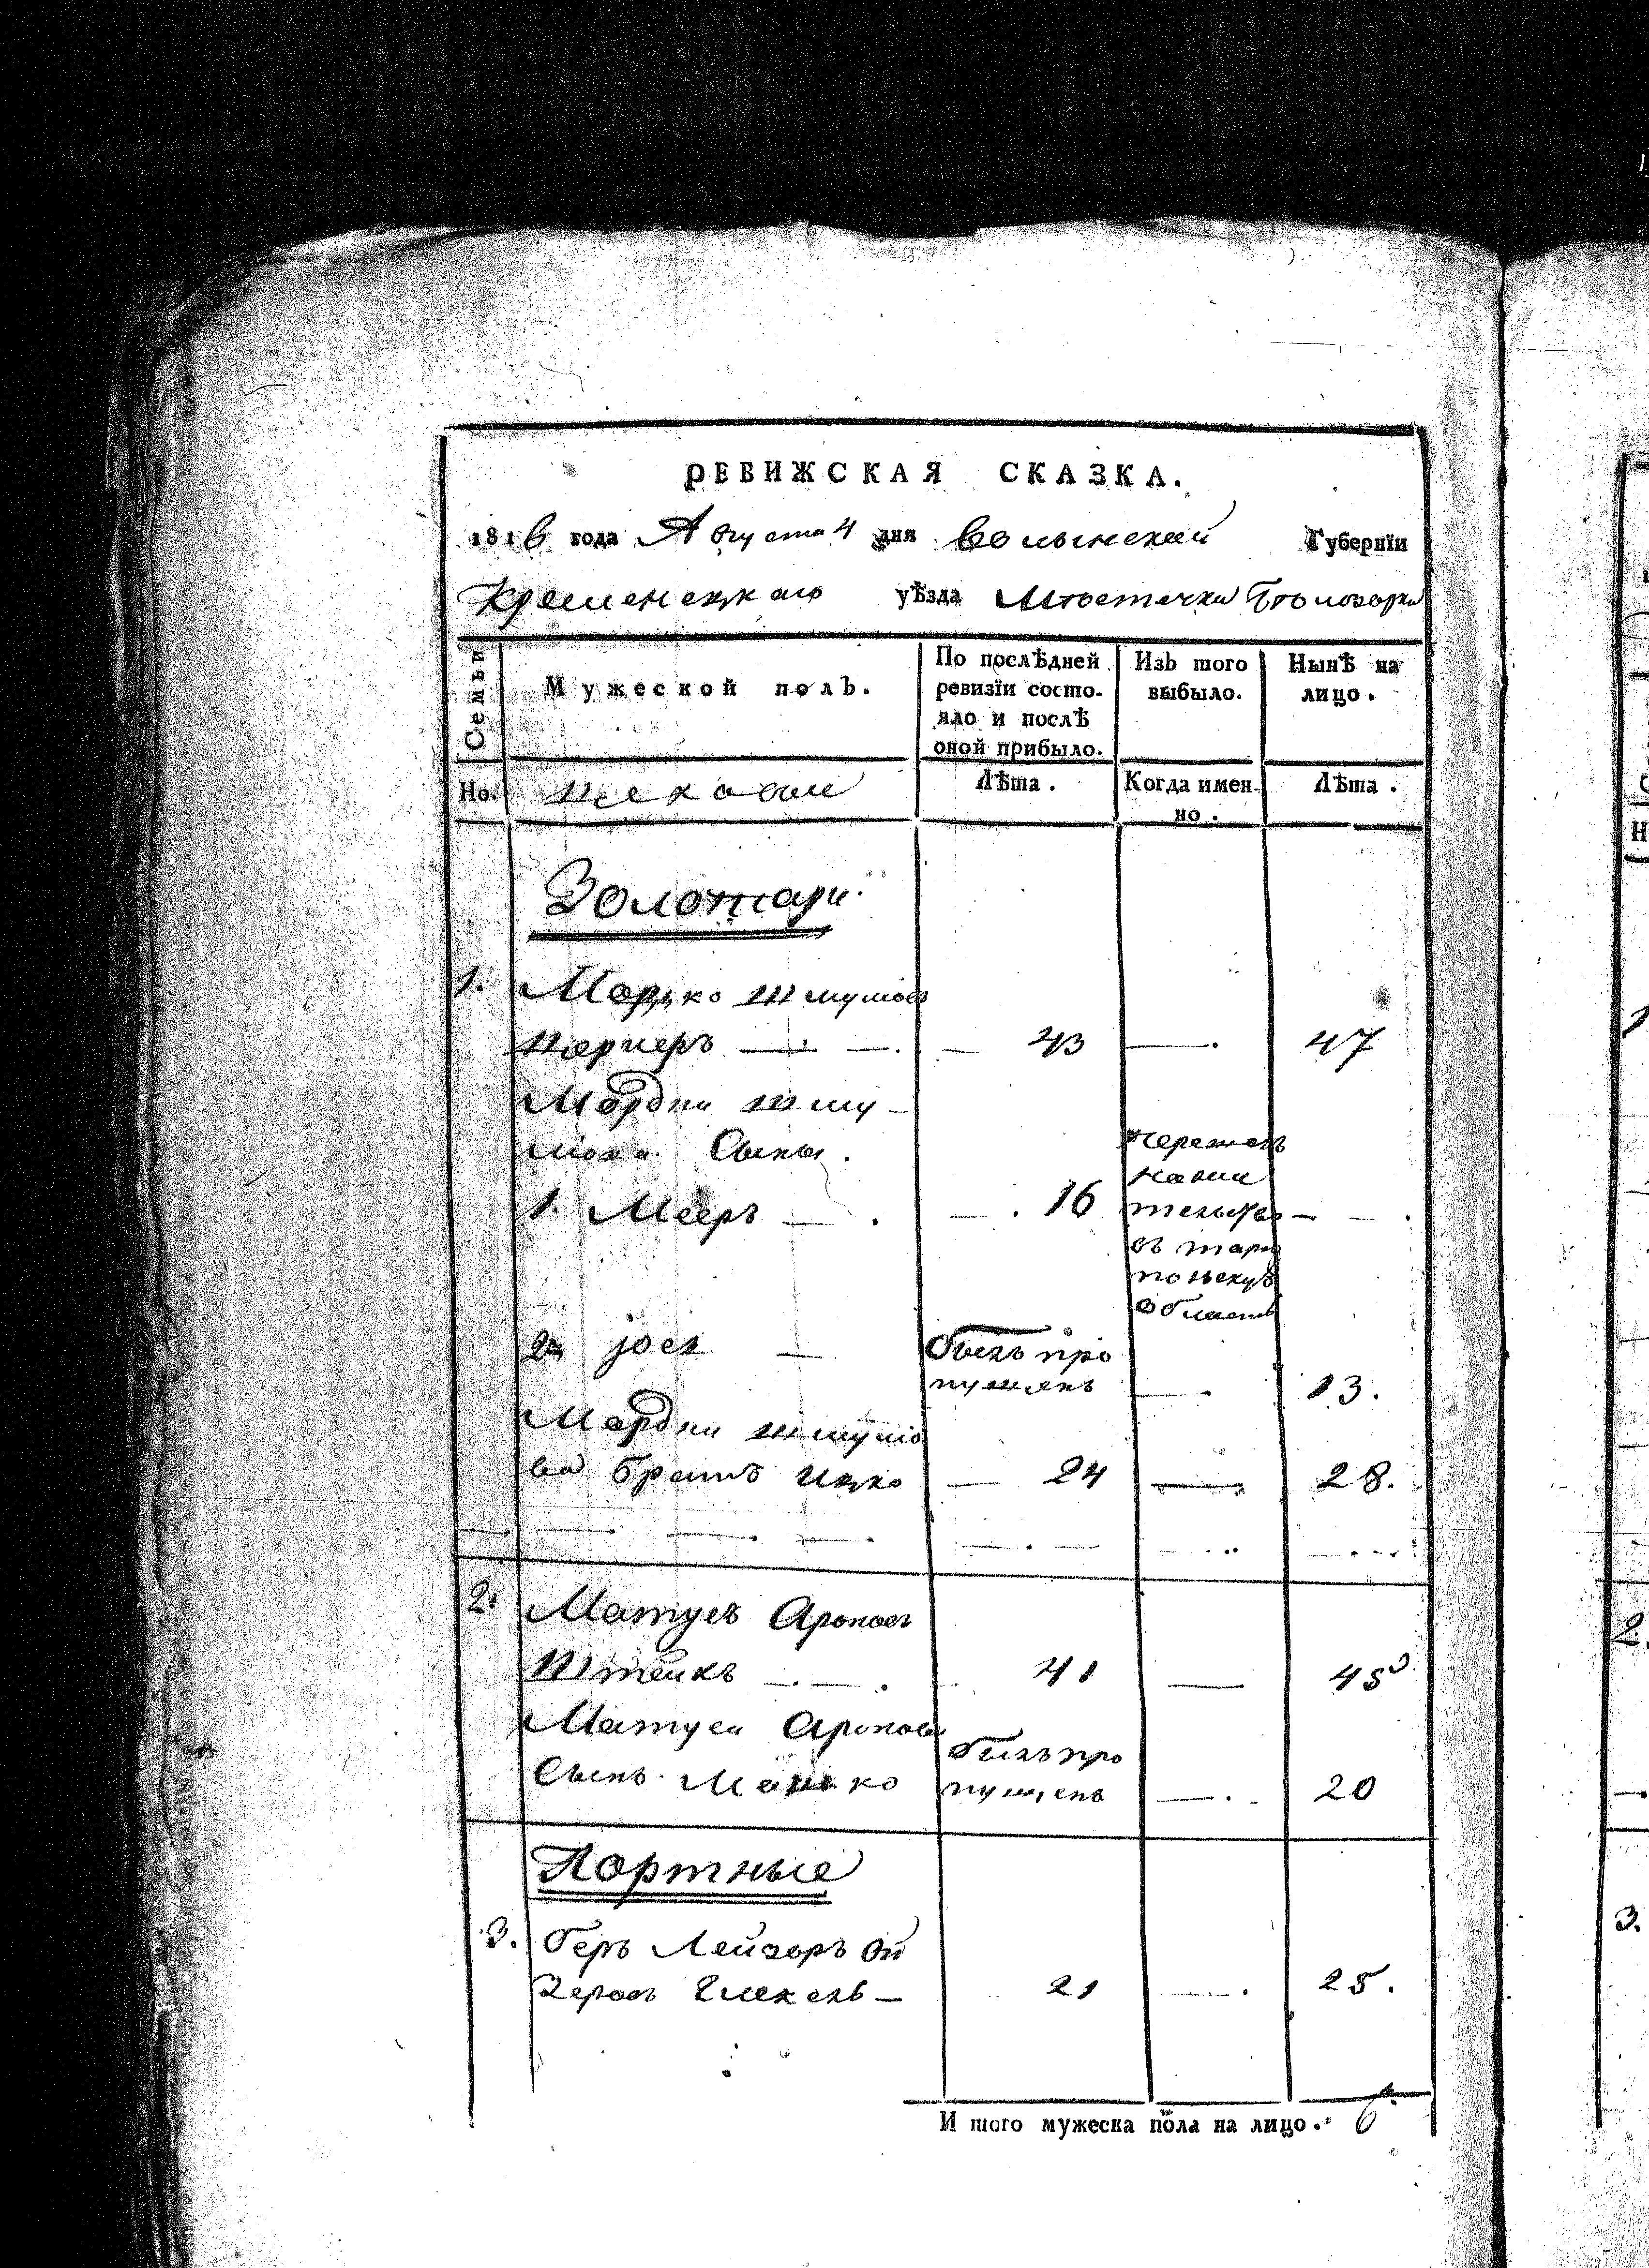 РЕВИЖСКАЯ СКАЗКА.
1816 года Августа 4 дня Волынской Губернїи
Кременецкаго уѣзда Мѣстечка Бѣлозорки
Семьи
Мужеской полъ.
По послѣдней ревизїи состо-
яло и послѣ
оной прибыло.
Изъ того
выбыло.
Нынѣ на
лицо.
Но.
Цеховые
Лѣта.
Когда имен-
но.
Лѣта.
Золотари.
1. Мордко Шмулов
43 — 47
Мордки Шму-
лова Сыны.
1. Меер — 16
тельство
въ тарно
польскую
область
2. Јосъ — былъ про
пущенъ — 13.
Мордки Шмуло
ва братъ Ицко — 24 — 28.
2. Матусъ Ароновъ
Штеинъ — 41 — 45
Матуса Аронова
Сынъ Мошко
былъ про
пущенъ — 20
Портные
3. Беръ Лейзоръ Ой
зеровъ — 21 — 25.
И того мужеска пола на лицо. 6
1
2.
3.